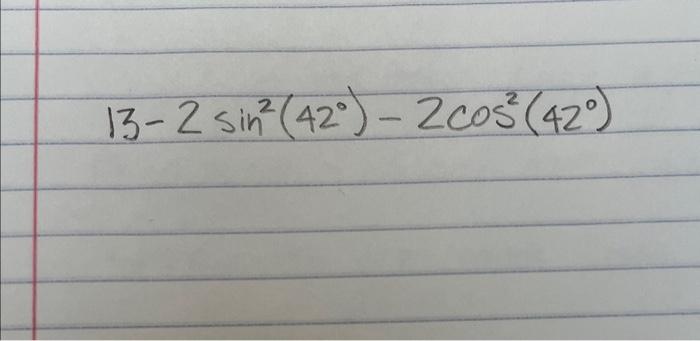 13-2 sin²(42°) - 2cos²(42°)